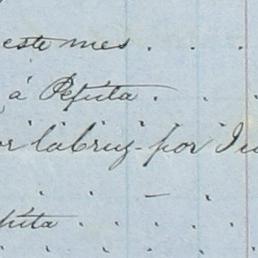 este mes . . .
á Pepita . . .
or labruz - por Ju
. . . - . .
pita . . . . . .